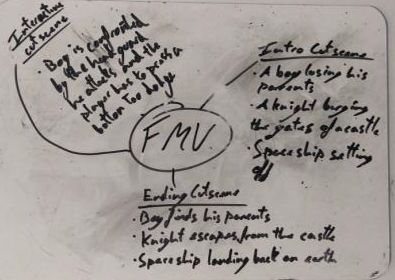 Interactive
cutscene
· Boy is confronted
by the head guard
he attacks and the
player has to press a
button too dodge
FMV
Intro Cutscene
· A boy losing his
parents
· A knight burging
the gates of a castle
· Spaceship setting
off
Ending Cutscene
· Boy finds his parents
· Knight escapes from the castle
· Spaceship landing back on earth